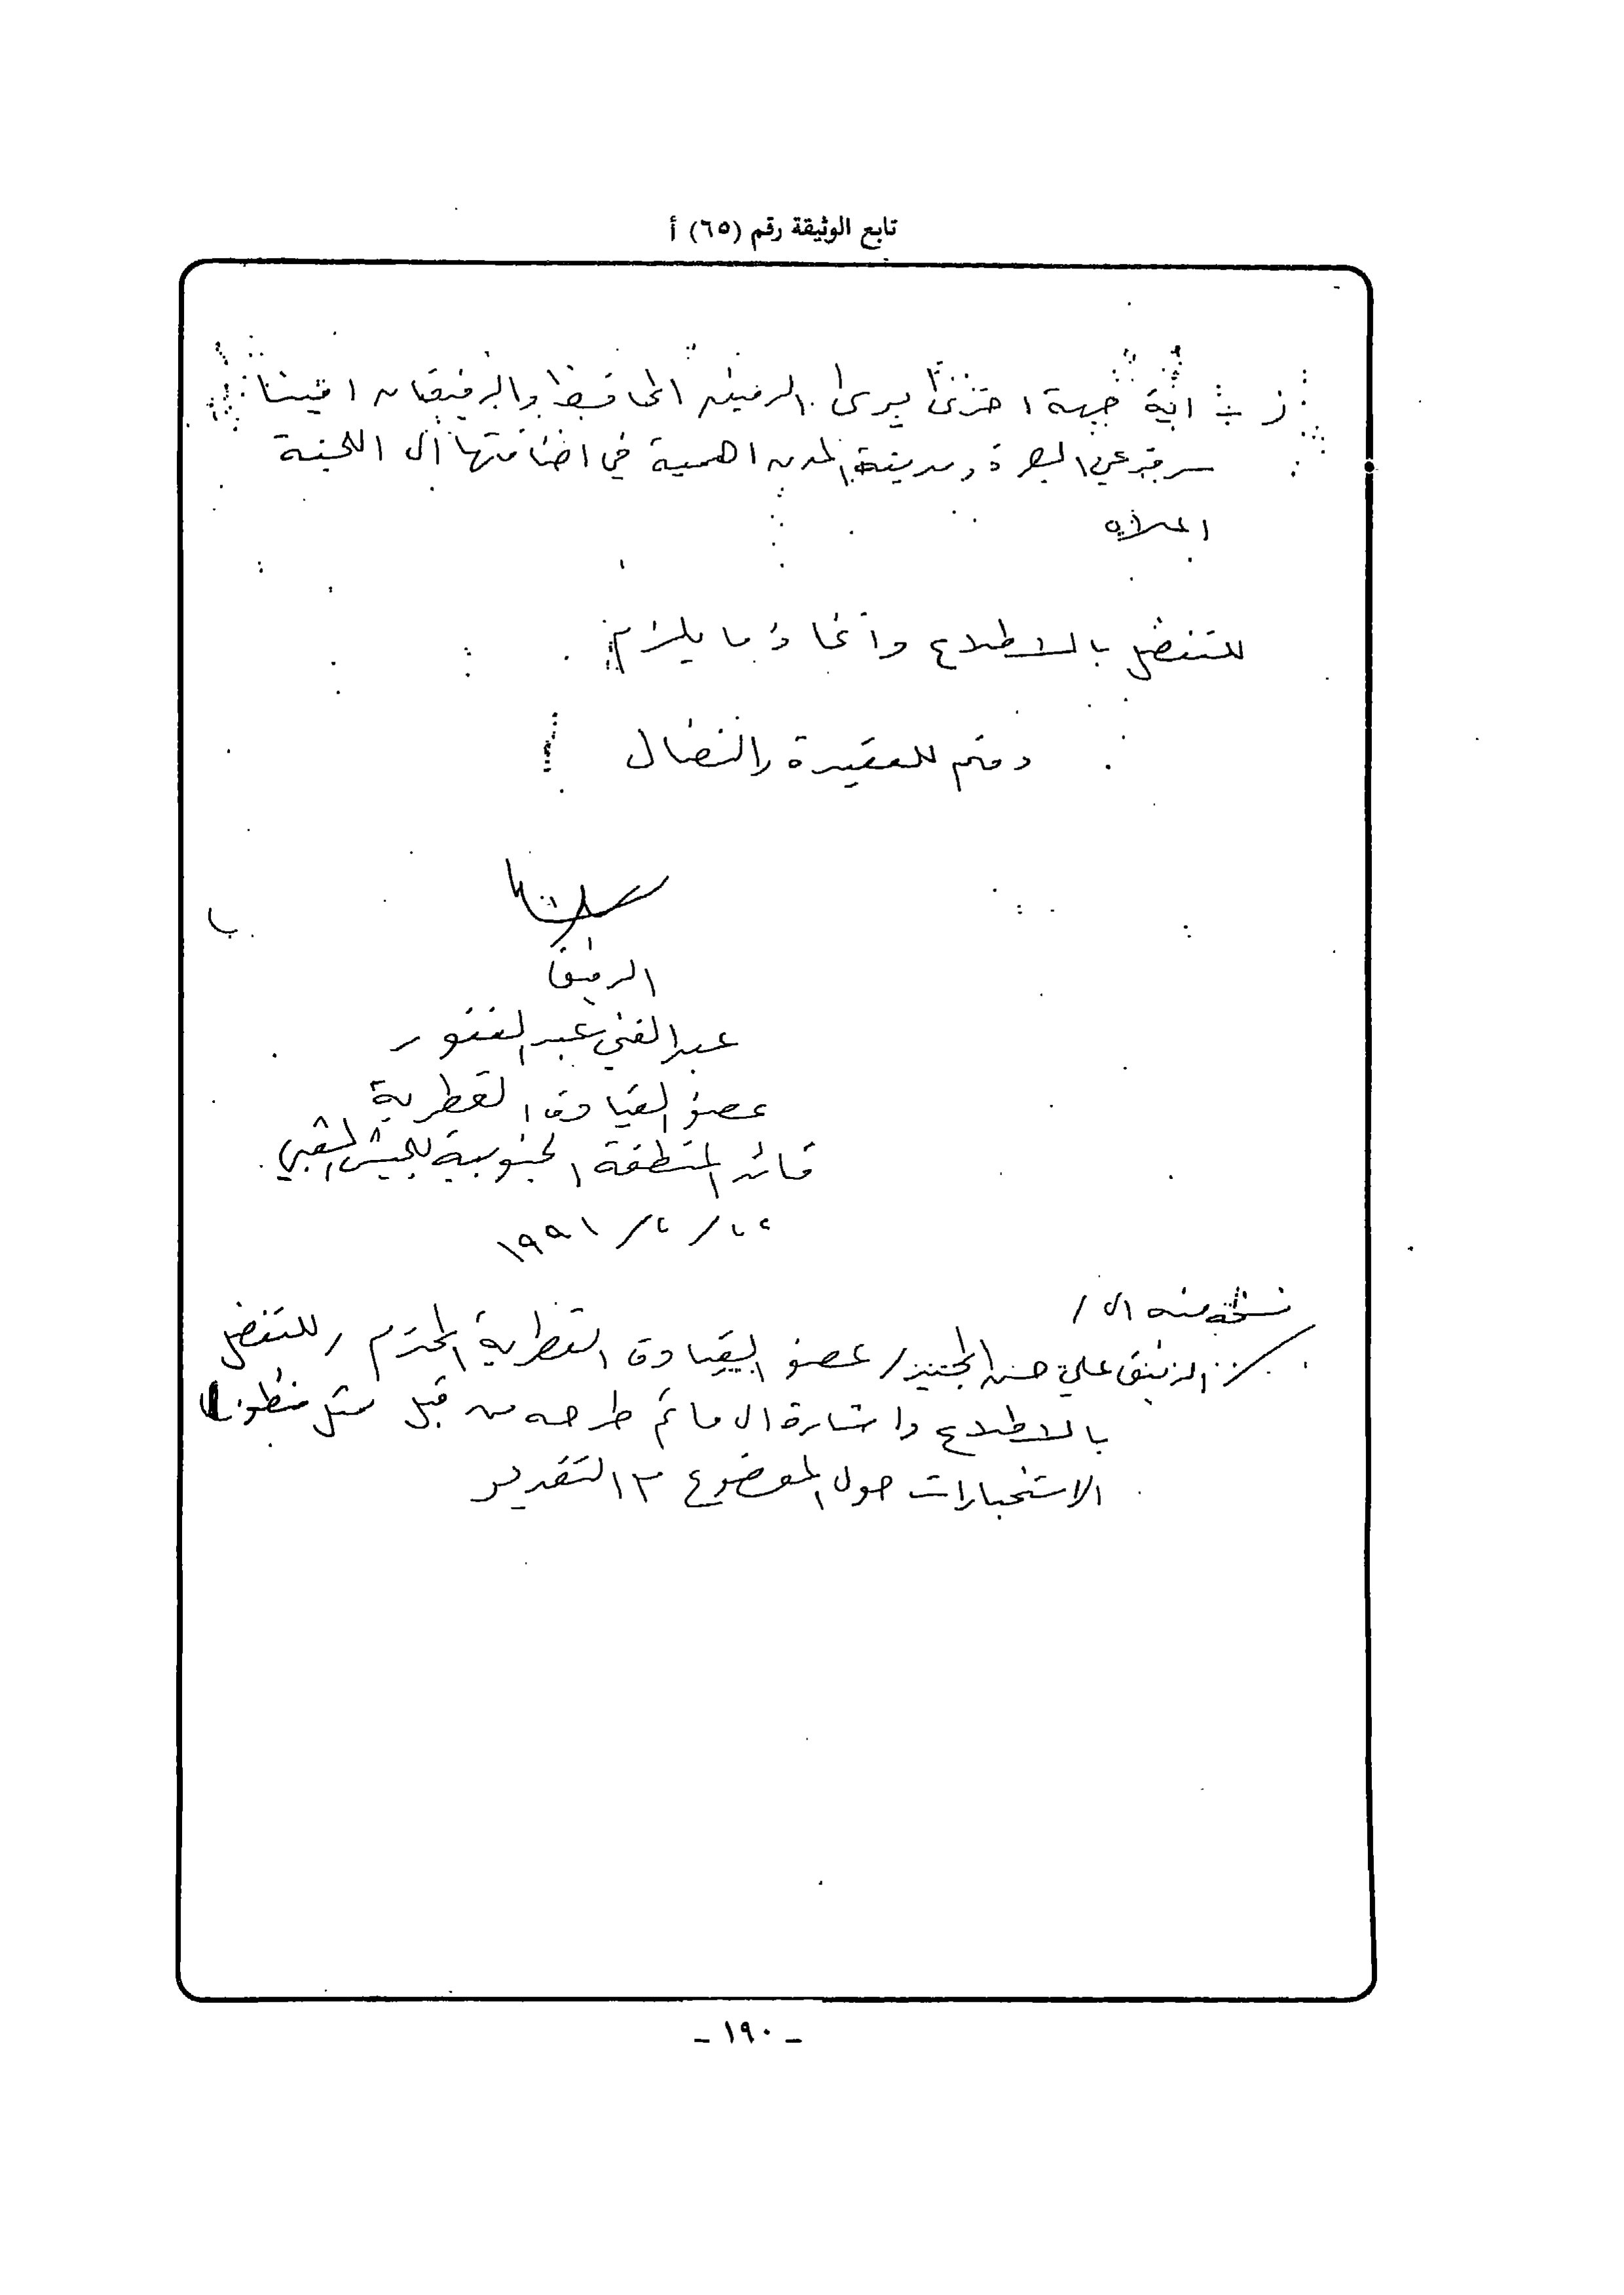 تابع الوثيقة رقم (٦٥) أ
ز - اية جهة اخرى يرى الرفيق المحافظ والرفيقان امينا
سر فرعي البصرة ومدينة المدن اهمية في اضافتها الى اللجنة
اعلاه
للتفضل بالاطلاع واتخاذ ما يلزم
دمتم للعقيدة والنضال
الرفيق
عبدالغني عبدالغفور
عضو القيادة القطرية
قائد المنطقة الجنوبية للجيش الشعبي
١٩٩١
نسخة منه الى /
الرفيق علي حسن المجيد / عضو القيادة القطرية المحترم / للتفضل
بالاطلاع واشارة الى ماتم طرحه من قبل ممثل منظومة
الاستخبارات حول الموضوع مع التقدير
- ١٩٠ -